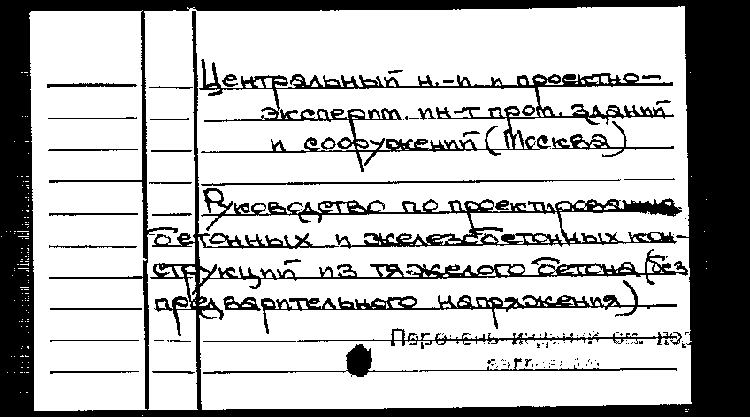 Центральный н.-и. и проектно-
эксперим. ин-т пром. зданий
и сооружений (Москва)
Руководство по проектированию
бетонных и железобетонных кон-
струкций из тяжелого бетона (без
предварительного напряжения).
Перечень изданий см. пер